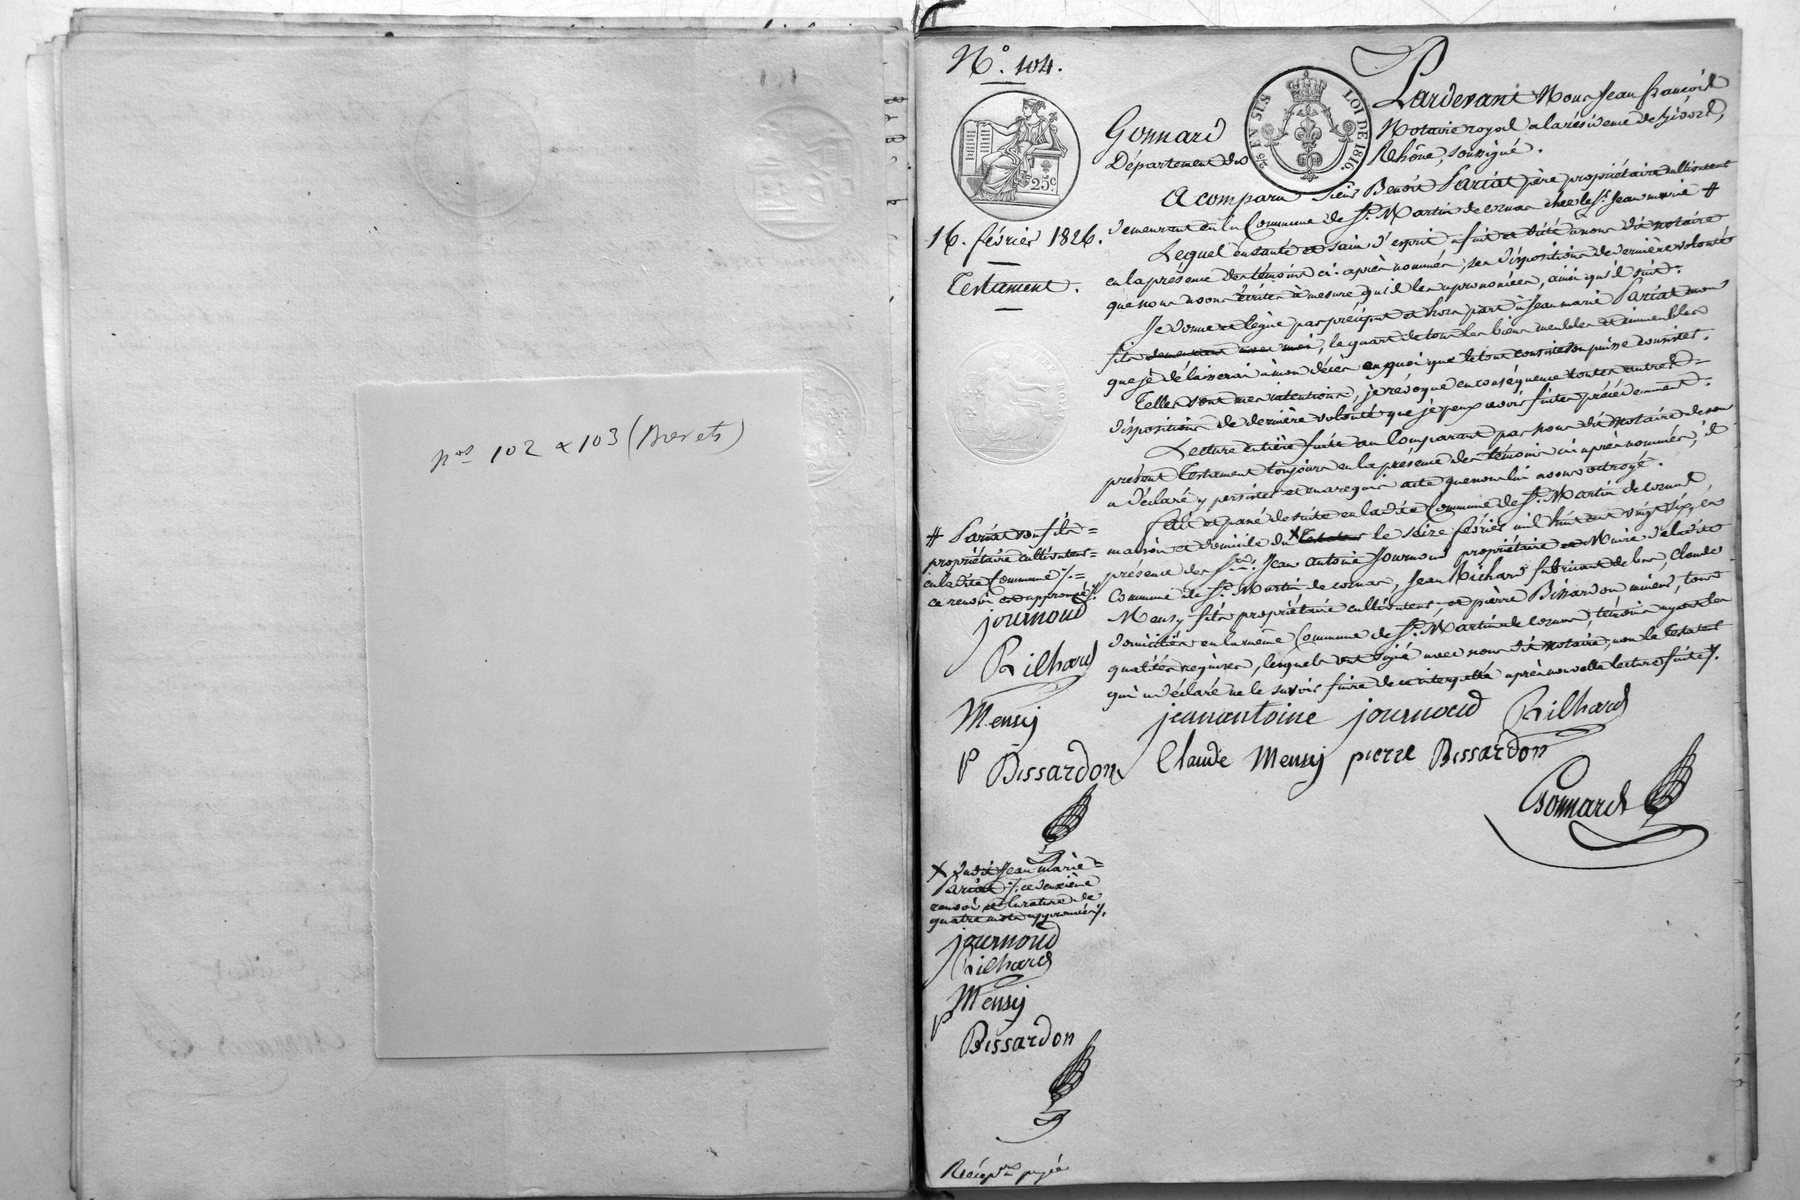 nos 102 & 103 (Brevets)
No. 104.
25c
EN SUS LOI DE 1816
16. février 1826.
Testament.
Pardevant Nous Jean françois
Gonnard Notaire royal à la résidence de Givors,
Département du Rhône, soussigné.
A comparu Sieur Benoît Pariat père propriétaire cultivateur
demeurant en la Commune de St. Martin de cornas chez le Sr. Jean marie #
Lequel en santé et sain d'esprit a fait et dicté à nous dit notaire
en la présence des témoins ci-après nommés, ses dispositions de dernière volonté
que nous avons écrites à mesure qu'il les a prononcées, ainsi qu'il suit.
Je donne et lègue par préciput et hors part à Jean marie Pariat mon
fils demeurant avec moi, le quart de tous les biens meubles et immeubles
que je délaisserai à mon décès en quoi que le tout consiste ou puisse consister.
Telles sont mes intentions, je révoque en conséquence toutes autres
dispositions de dernière volonté que je peux avoir faites précédemment.
Lecture entière faite au Comparant par nous dit Notaire de son
présent Testament toujours en la présence des témoins ci-après nommés, il
a déclaré y persister et en a requis acte que nous lui avons octroyé.
Fait et passé de suite en la dite Commune de St. Martin de cornas,
maison et domicile du X Testateur le seize février mil huit cent vingt six, en
présence des Srs. Jean Antoine Journoud propriétaire et Maire de la dite
Commune de St. Martin de cornas, Jean Richard fabricant de bas, Claude
Mensy fils propriétaire cultivateur, et pierre Bissardon mineur, tous
domiciliés en la même Commune de St. Martin de cornas, témoins ayant les
qualités requises, lesquels ont signé avec nous dit Notaire, non le Testateur
qui a déclaré ne le savoir faire de ce interpellé après nouvelle lecture faite /.
jeanantoine journoud Rilhard
Claude Mensy pierre Bissardon
Gonnard
# Pariat son fils =
propriétaire cultivateur =
en la dite Commune /. =
ce renvoi est approuvé /.
journoud
Rilhard
Mensy
P Bissardon
X dudit Jean marie =
Pariat /. ce deuxième
renvoi et la rature de
quatre mots approuvés /.
journoud
Rilhard
Mensy
P
Bissardon